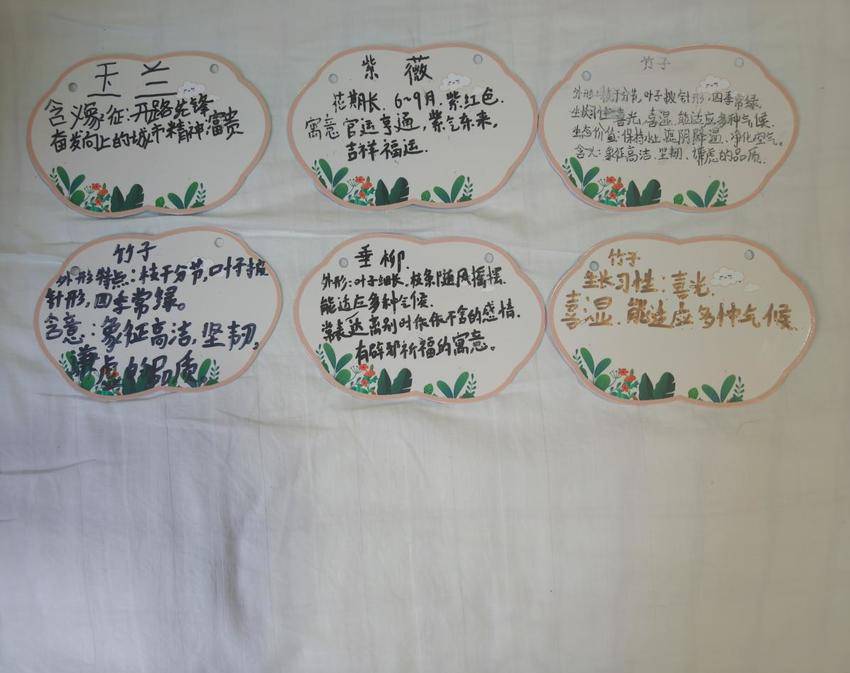 玉兰
含义象征:开路先锋
奋发向上的城市精神.富贵
紫薇
花期长.6~9月.紫.红色.
寓意官运亨通,紫气东来,
吉祥福运.
竹子
外形:枝干分节,叶子披针形,四季常绿,
喜光,喜湿,能适应多种气候.
生态价值:保持水土,遮阴降温,净化空气。
含义:象征高洁、坚韧、谦虚的品质.
竹子
外形特点:枝干分节,叶子披
针形,四季常绿。
含意:象征高洁,坚韧,
谦虚的品质。
垂柳
外形:叶子细长,枝条随风摇摆.
能适应多种气候.
常表达离别时依依不舍的感情.
有辟邪祈福的寓意。
竹子
生长习性:喜光.
喜湿.能适应多种气候.